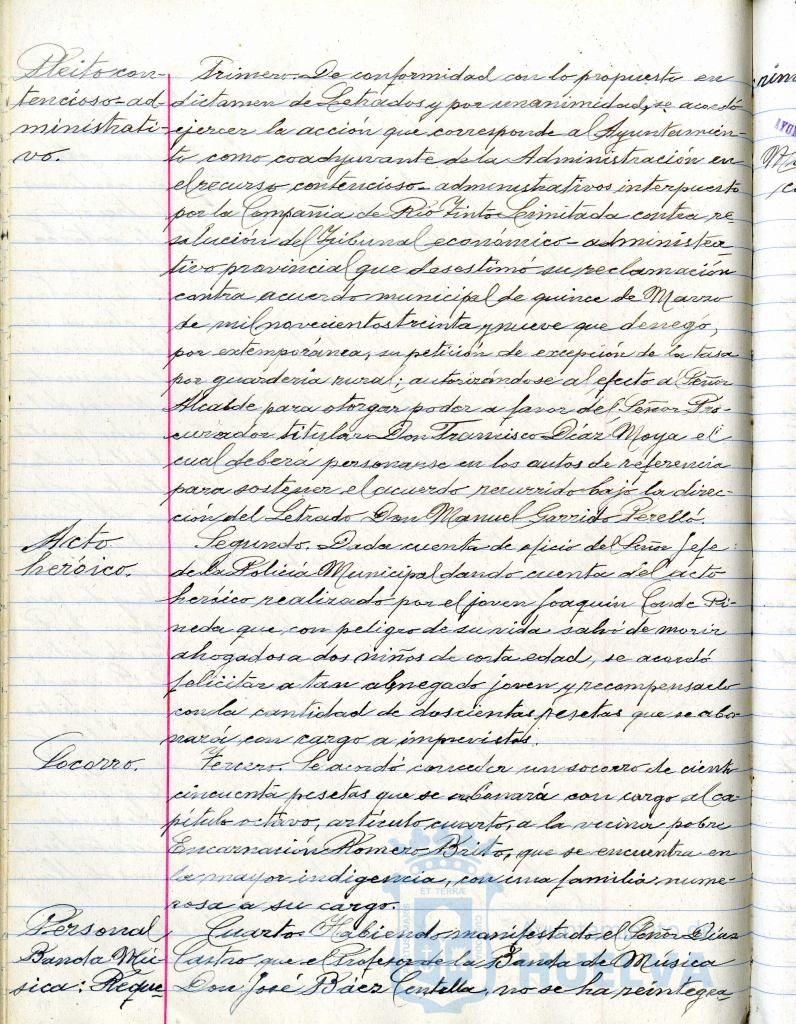 Pleito con-
tencioso-ad-
ministrati-
vo.
Primero. De conformidad con lo propuesto en
dictamen de Letrados y por unanimidad, se acordó
ejercer la acción que corresponde al Ayuntamien-
to como coadyuvante de la Administración en
el recurso contencioso-administrativos interpuesto
por la Compañia de Rió Tinto Limitada contra re-
solución del Tribunal económico-administra-
tivo provincial que desestimó su reclamación
contra acuerdo municipal de quince de Marzo
de mil novecientos treinta y nueve que denegó,
por extemporánea, su petición de excepción de la tasa
por guardería rural; autorizándose al efecto al Señor
Alcalde para otorgar poder a favor del Señor Pro-
curador titular Don Francisco Díaz Moya el
cual deberá personarse en los autos de referencia
para sostener el acuerdo recurrido bajo la direc-
ción del Letrado Don Manuel Garrido Perelló.
Acto
heróico.
Segundo. Dada cuenta de oficio del Señor Jefe
de la Policía Municipal dando cuenta del acto
heróico realizado por el joven Joaquín Conde Pi-
neda que con peligro de su vida salvó de morir
ahogados a dos niños de corta edad, se acordó
felicitar a tan abnegado joven y recompensarlo
con la cantidad de doscientas pesetas que se abo-
nará con cargo a imprevistos.
Socorro.
Tercero. Se acordó conceder un socorro de ciento
cincuenta pesetas que se abonará con cargo al ca-
pítulo octavo, artículo cuarto, a la vecina pobre
Encarnación Romero Brito, que se encuentra en
la mayor indigencia, con una familia nume-
rosa a su cargo.
Personal
Banda Mú-
sica: Reque
Cuarto. Habiendo manifestado el Señor Díaz
Castro que el Profesor de la Banda de Música
Don José Báez Centella, no se ha reintegra-
ET TERRÆ
HUELVA